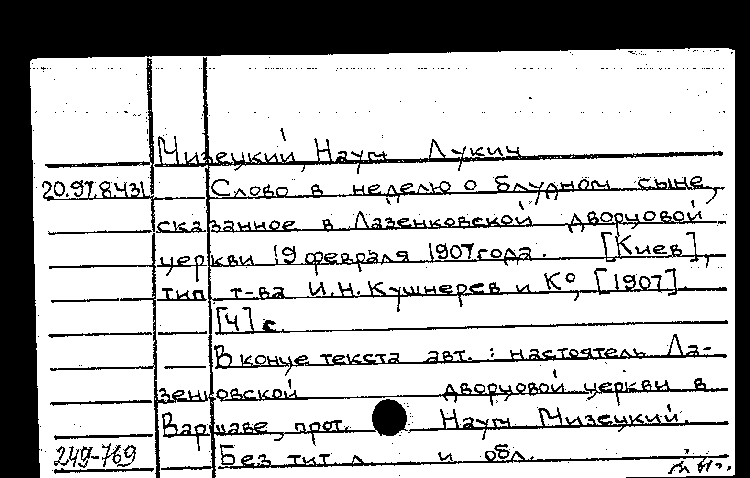 Мизецкий, Наум Лукич
20.97.8.431 Слово в неделю о блудном сыне,
сказанное в Лазенковской дворцовой
церкви 19 февраля 1907 года. [Киев],
тип. т-ва И.Н. Кушнерев и К°, [1907].
[4] с.
В конце текста авт.: настоятель Ла-
зенковской дворцовой церкви в
Варшаве, прот. Наум Мизецкий.
249-769 Без тит. л. и обл.